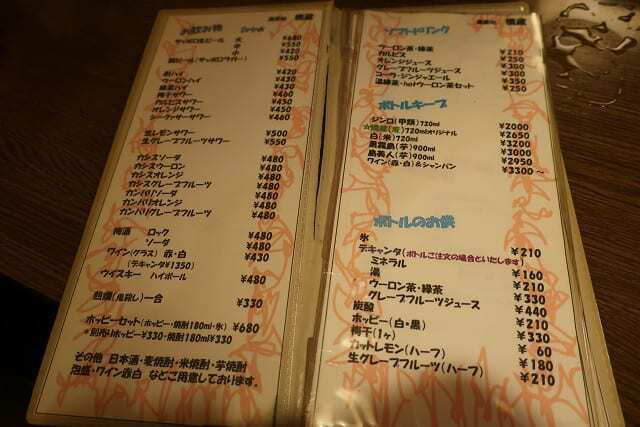 お飲み物 Drink
サッポロ生ビール 大 ¥680
中 ¥550
小 ¥420
¥550
酎ハイ ¥420
ウーロンハイ ¥430
緑茶ハイ ¥430
梅干サワー ¥460
カルピスサワー ¥450
オレンジサワー ¥450
シークァーサーサワー ¥450
生レモンサワー ¥500
生グレープフルーツサワー ¥550
カシスソーダ ¥480
カシスウーロン ¥480
カシスオレンジ ¥480
カシスグレープフルーツ ¥480
カンパリソーダ ¥480
カンパリオレンジ ¥480
カンパリグレープフルーツ ¥480
梅酒 ロック ¥480
ソーダ ¥480
ワイン(グラス) 赤・白 ¥430
(デキャンタ¥1350)
ウイスキー ハイボール ¥480
熱燗 一合 ¥330
ホッピーセット(ホッピー・焼酎180ml・氷) ¥680
※別売りホッピー¥330・焼酎180ml¥330
その他 日本酒・麦焼酎・米焼酎・芋焼酎
泡盛・ワイン赤白 などご用意しております。
ソフトドリンク
ウーロン茶・緑茶 ¥210
カルピス ¥250
オレンジジュース ¥300
グレープフルーツジュース ¥300
コーラ・ジンジャエール ¥350
温緑茶・hotウーロン茶セット ¥250
ボトルキープ
ジンロ(甲類)720ml ¥2000
(麦)720mlオリジナル ¥2650
白(米)720ml ¥3200
黒霧島(芋)900ml ¥3000
島美人(芋)900ml ¥2950
ワイン(赤・白)&シャンパン ¥3300～
ボトルのお供
氷 ¥210
デキャンタ(ボトルご注文の場合といたします)
ミネラル ¥160
湯 ¥210
ウーロン茶・緑茶 ¥330
グレープフルーツジュース ¥440
炭酸 ¥210
ホッピー(白・黒) ¥330
梅干(1ヶ) ¥60
カットレモン(ハーフ) ¥180
生グレープフルーツ(ハーフ) ¥210